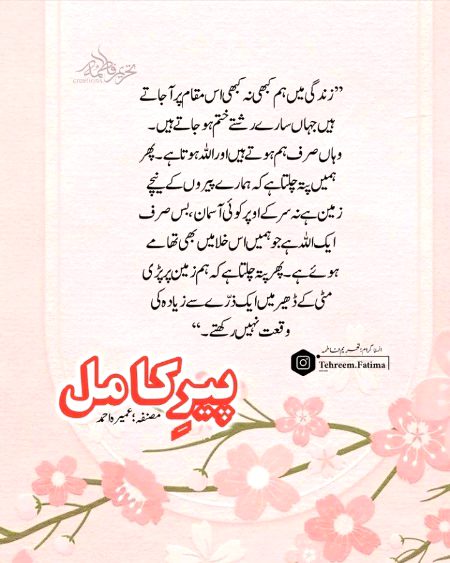 تحریم فاطمہ
creations
”زندگی میں ہم کبھی نہ کبھی اس مقام پر آ جاتے
ہیں جہاں سارے رشتے ختم ہو جاتے ہیں۔
وہاں صرف ہم ہوتے ہیں اور اللہ ہوتا ہے۔ پھر
ہمیں پتہ چلتا ہے کہ ہمارے پیروں کے نیچے
زمین ہے نہ سر کے اوپر کوئی آسمان، بس صرف
ایک اللہ ہے جو ہمیں اس خلا میں بھی تھامے
ہوئے ہے۔ پھر پتہ چلتا ہے کہ ہم زمین پر پڑی
مٹی کے ڈھیر میں ایک ذرّے سے زیادہ کی
وقعت نہیں رکھتے۔“
انسٹا گرام؛ تحریم فاطمہ
Tehreem.Fatima
پیرِ کامل
مصنفہ؛ عمیرہ احمد